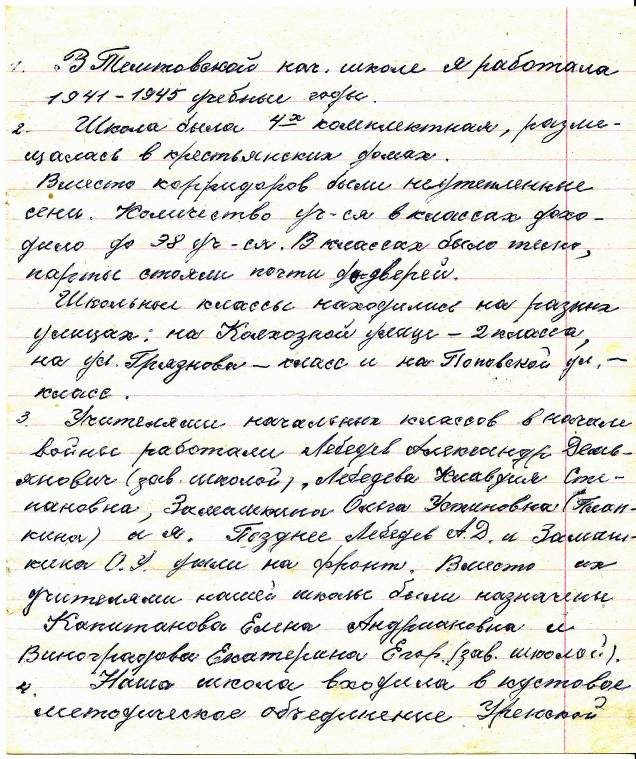 1. В Темтовской нач. школе я работала
1941-1945 учебные годы.
2. Школа была 4х комплектная, разме-
щалась в крестьянских домах.
Вместо корридоров были неутепленные
сени. Количество уч-ся в классах дохо-
дило до 38 уч-ся. В классах было тесно,
парты стояли почти до дверей.
Школьные классы находились на разных
улицах: на Колхозной улице - 2 класса,
на ул. Грязнова - класс и на Поповской ул. -
класс.
3. Учителями начальных классов в начале
войны работали Лебедев Александр Демь-
янович (зав. школой), Лебедева Клавдия Сте-
пановна, Замашкина Ольга Устиновна
кина) и я. Позднее Лебедев А.Д. и Замаш-
кина О.У. ушли на фронт. Вместо их
учителями нашей школы были назначены
Капитанова Елена Андриановна и
Виноградова Екатерина Егор. (зав. школой).
4. Наша школа входила в кустовое
методическое объединение Уренской